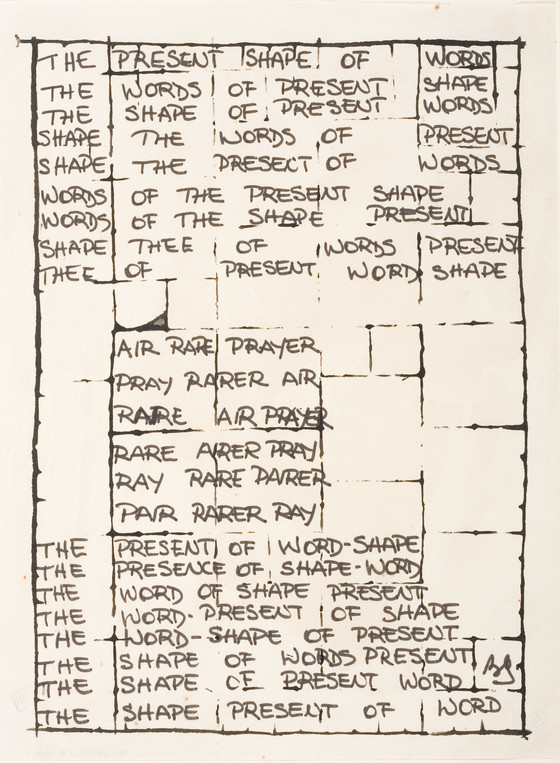 THE PRESENT SHAPE OF WORDS
THE WORDS OF PRESENT SHAPE
THE SHAPE OF PRESENT WORDS
SHAPE THE WORDS OF PRESENT
SHAPE THE PRESENT OF WORDS
WORDS OF THE PRESENT SHAPE
WORDS OF THE SHAPE PRESENT
SHAPE THEE OF WORDS PRESENT
THEE OF PRESENT WORD SHAPE
AIR RARE PRAYER
PRAY RARER AIR
RARE AIR PRAYER
RARE AIRER PRAY
RAY RARE PAIRER
PAIR RARER RAY
THE PRESENT OF WORD-SHAPE
THE PRESENCE OF SHAPE-WORD
THE WORD OF SHAPE PRESENT
THE WORD-PRESENT OF SHAPE
THE WORD-SHAPE OF PRESENT
THE SHAPE OF WORDS PRESENT
THE SHAPE OF PRESENT WORD
THE SHAPE PRESENT OF WORD